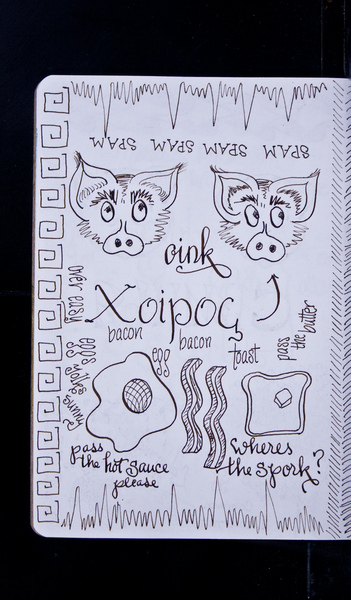 SPAM SPAM SPAM SPAM SPAM
oink
Χοιρος
over easy
eggs
sunny
bacon
egg
bacon
toast
pass
the butter
pass
the hot sauce
please
wheres
the spork?